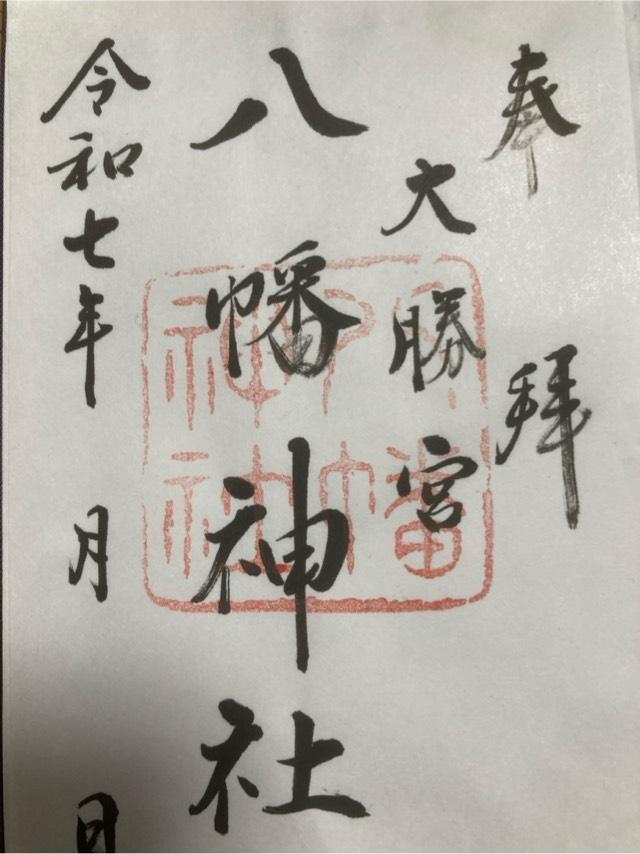 奉拝
大勝宮
八幡神社
令和七年 月 日